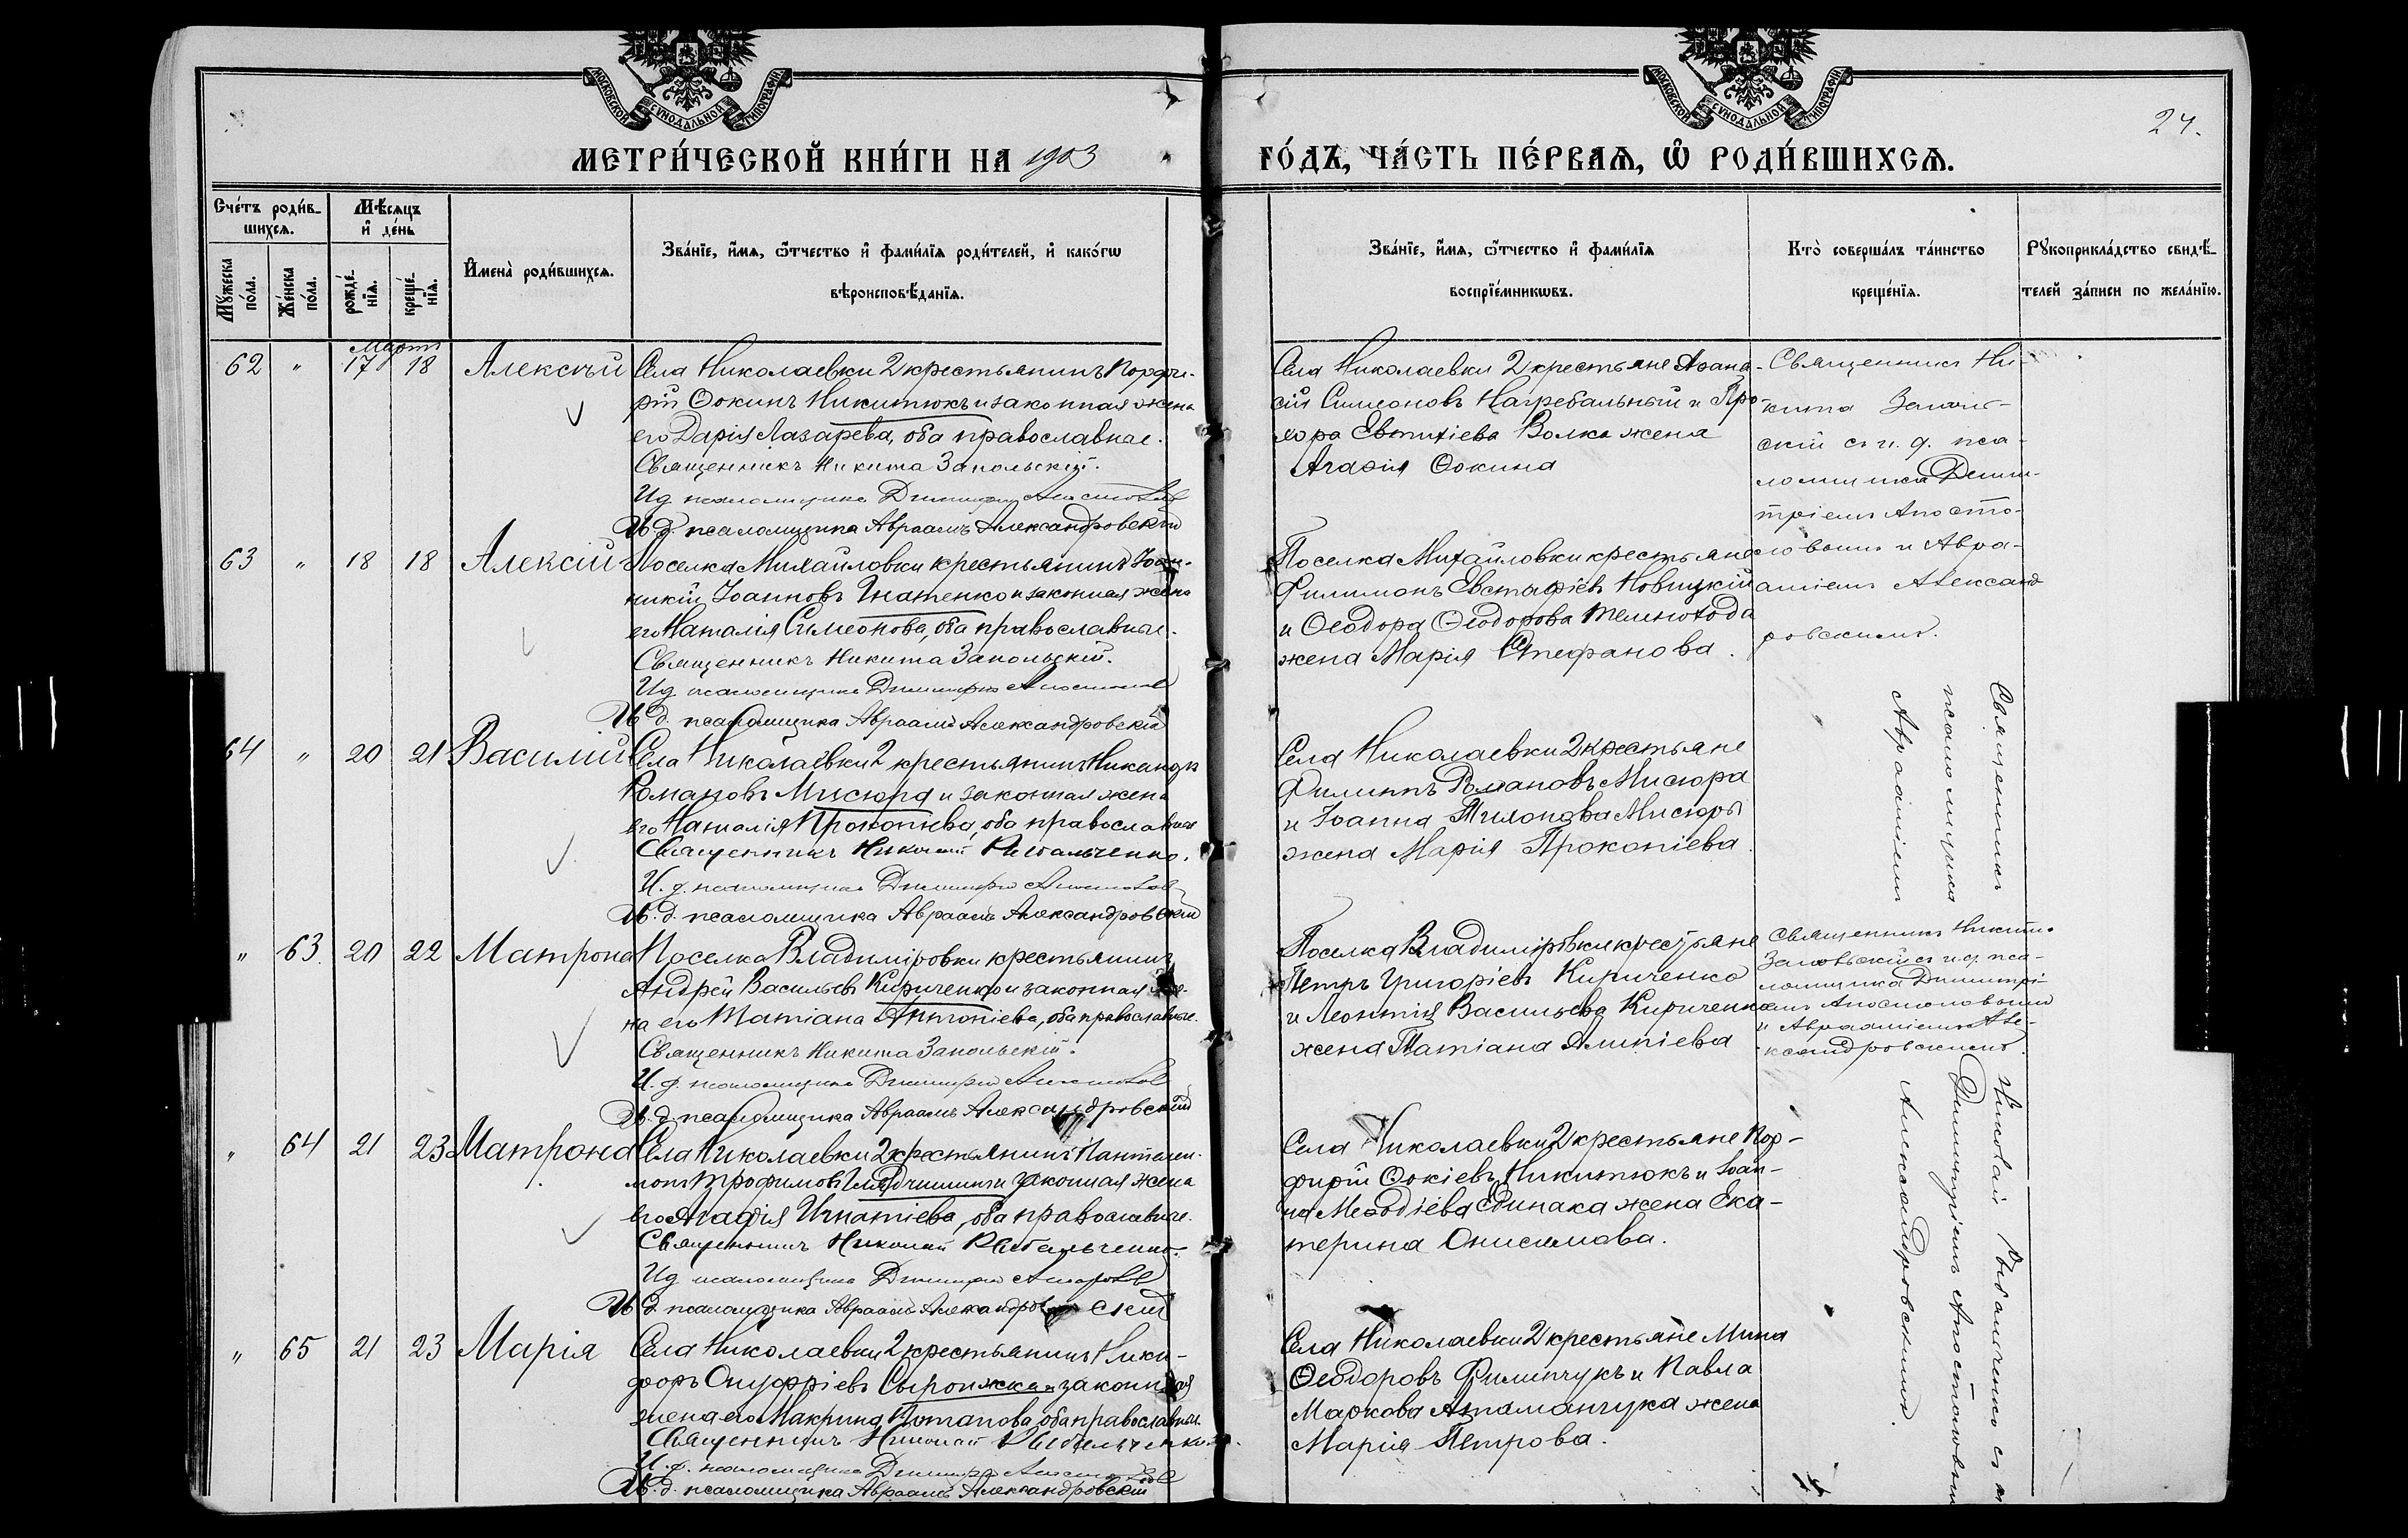 МОСКОВСКОЙ СѴНОДАЛЬНОЙ ТИПОГРАФІИ
МОСКОВСКОЙ СѴНОДАЛЬНОЙ ТИПОГРАФІИ
24.
МЕТРИ́ЧЕСКОЙ КНИ́ГИ НА 1903
ГО́ДЪ, ЧА́СТЬ ПЕ́РВАѦ, Ѡ РОДИ́ВШИХСѦ.
Сче́тъ роди́в-
шихсѧ.
Мѣ́сѧцъ
и҆ де́нь
Мꙋ́жеска
по́ла.
Же́нска
по́ла.
рожде́-
нїѧ.
креще́-
нїѧ.
И҆мена̀ роди́вшихсѧ.
Зва́нїе, и҆́мѧ, ѻ҆́тчество и҆ фами́лїѧ роди́телей, и҆ како́гѡ
вѣроисповѣ́данїѧ.
Зва́нїе, и҆́мѧ, ѻ҆́тчество и҆ фами́лїѧ
воспрїе́мникѡвъ.
Кто̀ соверша́лъ та́инство
креще́нїѧ.
Рꙋкоприкла́дство свидѣ́-
телей за́писи по жела́нїю.
Мартъ
62 " 17 18 Алексѣй
Села Николаевки 2 крестьянинъ Порфи-
рій Ѳокинъ Никитюкъ и законная жена
его Дарія Лазарева, оба православные.
Священникъ Никита Запольскій.
И д псаломщика Димитрій Апостоловъ
И. д. псаломщика Авраамъ Александровскій
Села Николаевки 2 крестьяне Аѳана-
сій Симеоновъ Нагребальный и Про
кора Евтихіева Волка жена
Агаѳія Ѳокина
Священникъ Ни-
кита Заполь-
скій съ и. д. пса-
ломщика Дими-
тріемъ Апосто-
ловымъ и Авра-
аміемъ Александ
ровскимъ.
63 " 18 18 Алексій
Поселка Михайловки крестьянинъ Іоан-
никій Іоанновъ Игнатенко и законная жена
его Наталія Симеонова, оба православные.
Священникъ Никита Запольскій.
И д псаломщика Димитрій Апостоловъ
И. д. псаломщика Авраамъ Александровскій
Поселка Михайловки крестьяне
Филимонъ Евстафіевъ Новицкій
и Ѳеодора Ѳеодорова Темнохода
жена Марія Стефанова.
64 " 20 21 Василій
Села Николаевки 2 крестьянинъ Никаноръ
Романовъ Мисюра и законная жена
его Наталія Прокопіева, оба православные
Священникъ Николай Рыбальченко.
И. д. псаломщика Димитрій Апостоловъ
И. д. псаломщика Авраамъ Александровскій
Села Николаевки 2 крестьяне
Филиппъ Романовъ Мисюра
и Іоанна Филонова Мисюры
жена Марія Прокопіева.
Священникъ Николай Рыбальченко съ и
псаломщика Димитріемъ Апостоловым
Авраамiемъ Александровскимъ.
" 63. 20 22 Матрона
Поселка Владиміровки крестьянинъ
Андрей Васильевъ Кириченко и законная же-
на его Татіана Антоніева, оба православные.
Священникъ Никита Запольскій.
И. д. псаломщика Димитрій Апостоловъ
И. д. псаломщика Авраамъ Александровскій
Поселка Владиміровки крестьяне
Петръ Григоріевъ Кириченко
и Леонтія Васильева Кириченко
жена Татіана Алипіева
Священникъ Никита
Запольскій съ и.д. пса-
ломщика Димитрі-
емъ Апостоловымъ
и Авраамiемъ Але-
ксандровскимъ.
" 64 21 23 Матрона
Села Николаевки 2 крестьянинъ Пантелеи-
монъ Трофимовъ и законная жена
его Агафія Игнатіева, оба православные.
Священникъ Николай Рыбальченко.
И д псаломщика Димитрій Апостоловъ
И. д. псаломщика Авраамъ Александровскій
Села Николаевки 2 крестьяне Пор-
фирій Ѳокіевъ Никитюкъ и Іоан-
на Меѳодіева Единака жена Ека-
терина Онисимова.
" 65 21 23 Марія
Села Николаевки 2 крестьянинъ Ники-
форъ Онуфріевъ и законная
жена его Макрина Потапова, оба православные.
Священникъ Николай Рыбальченко.
И. д. псаломщика Димитрій Апостоловъ
И. д. псаломщика Авраамъ Александровскій
Села Николаевки 2 крестьяне Мина
Ѳеодоровъ Филипчукъ и Павла
Маркова Атаманчука жена
Марія Петрова.